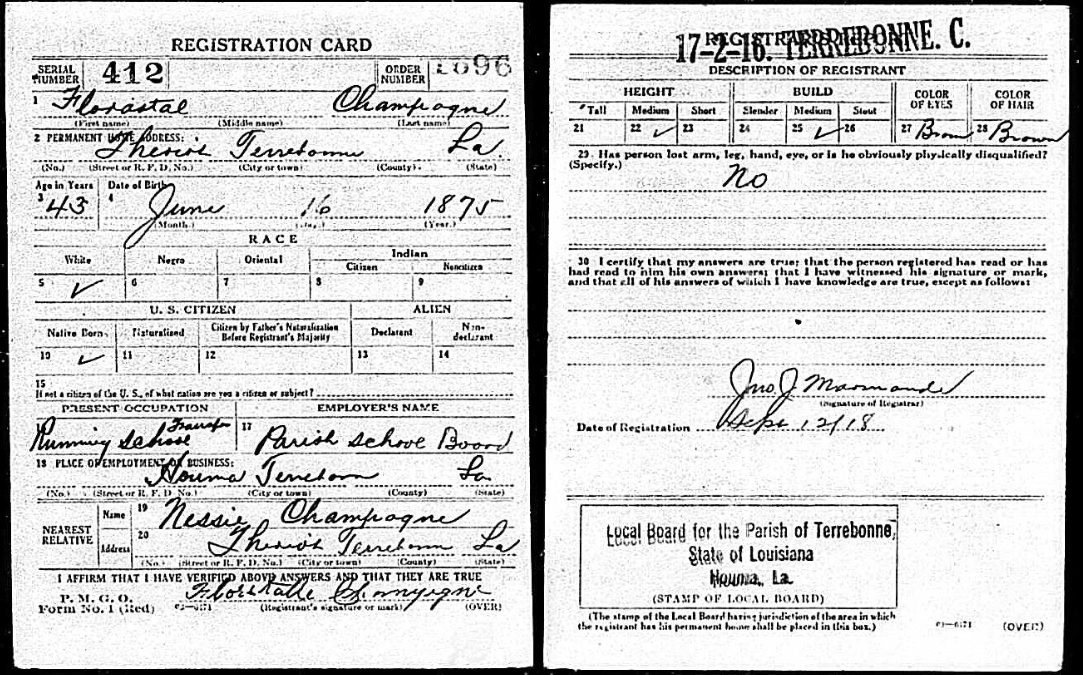 REGISTRATION CARD
SERIAL NUMBER 412 ORDER NUMBER 1696
1 Florastal Champagne
(First name) (Middle name) (Last name)
2 PERMANENT HOME ADDRESS:
Theriot Terrebonne La
(No.) (Street or R. F. D. No.) (City or town) (County) (State)
Age in Years Date of Birth
3 43 4 June 16 1875
(Month.) (Day.) (Year.)
RACE
White Negro Oriental Indian
Citizen Noncitizen
5 ✓ 6 7 8 9
U. S. CITIZEN ALIEN
Native Born. Naturalized Citizen by Father's Naturalization Before Registrant's Majority Declarant Non-declarant
10 ✓ 11 12 13 14
15
If not a citizen of the U. S., of what nation are you a citizen or subject?
PRESENT OCCUPATION EMPLOYER'S NAME
Running School Transfer 17 Parish School Board
18 PLACE OF EMPLOYMENT OR BUSINESS:
Houma Terrebonn La
(No.) (Street or R. F. D. No.) (City or town) (County) (State)
NEAREST RELATIVE Name 19 Nessie Champagne
Address 20 Theriot Terrebonn La
(No.) (Street or R. F. D. No.) (City or town) (County) (State)
I AFFIRM THAT I HAVE VERIFIED ABOVE ANSWERS AND THAT THEY ARE TRUE
P. M. G. O.
Form No. 1 (Red) 03—6171 (Registrant's signature or mark) (OVER)
17-2-16. TERREBONNE. C.
DESCRIPTION OF REGISTRANT
HEIGHT BUILD COLOR OF EYES COLOR OF HAIR
Tall Medium Short Slender Medium Stout
21 22 ✓ 23 24 25 ✓ 26 27 Brown 28 Brown
29 Has person lost arm, leg, hand, eye, or is he obviously physically disqualified?
(Specify.)
No
30 I certify that my answers are true; that the person registered has read or has
had read to him his own answers; that I have witnessed his signature or mark,
and that all of his answers of which I have knowledge are true, except as follows:
Jno. J. Marmande
(Signature of Registrar)
Date of Registration Sept 12/18
Local Board for the Parish of Terrebonne,
State of Louisiana
Houma, La.
(STAMP OF LOCAL BOARD)
(The stamp of the Local Board having jurisdiction of the area in which
the registrant has his permanent home shall be placed in this box.)
03—6171 (OVER)